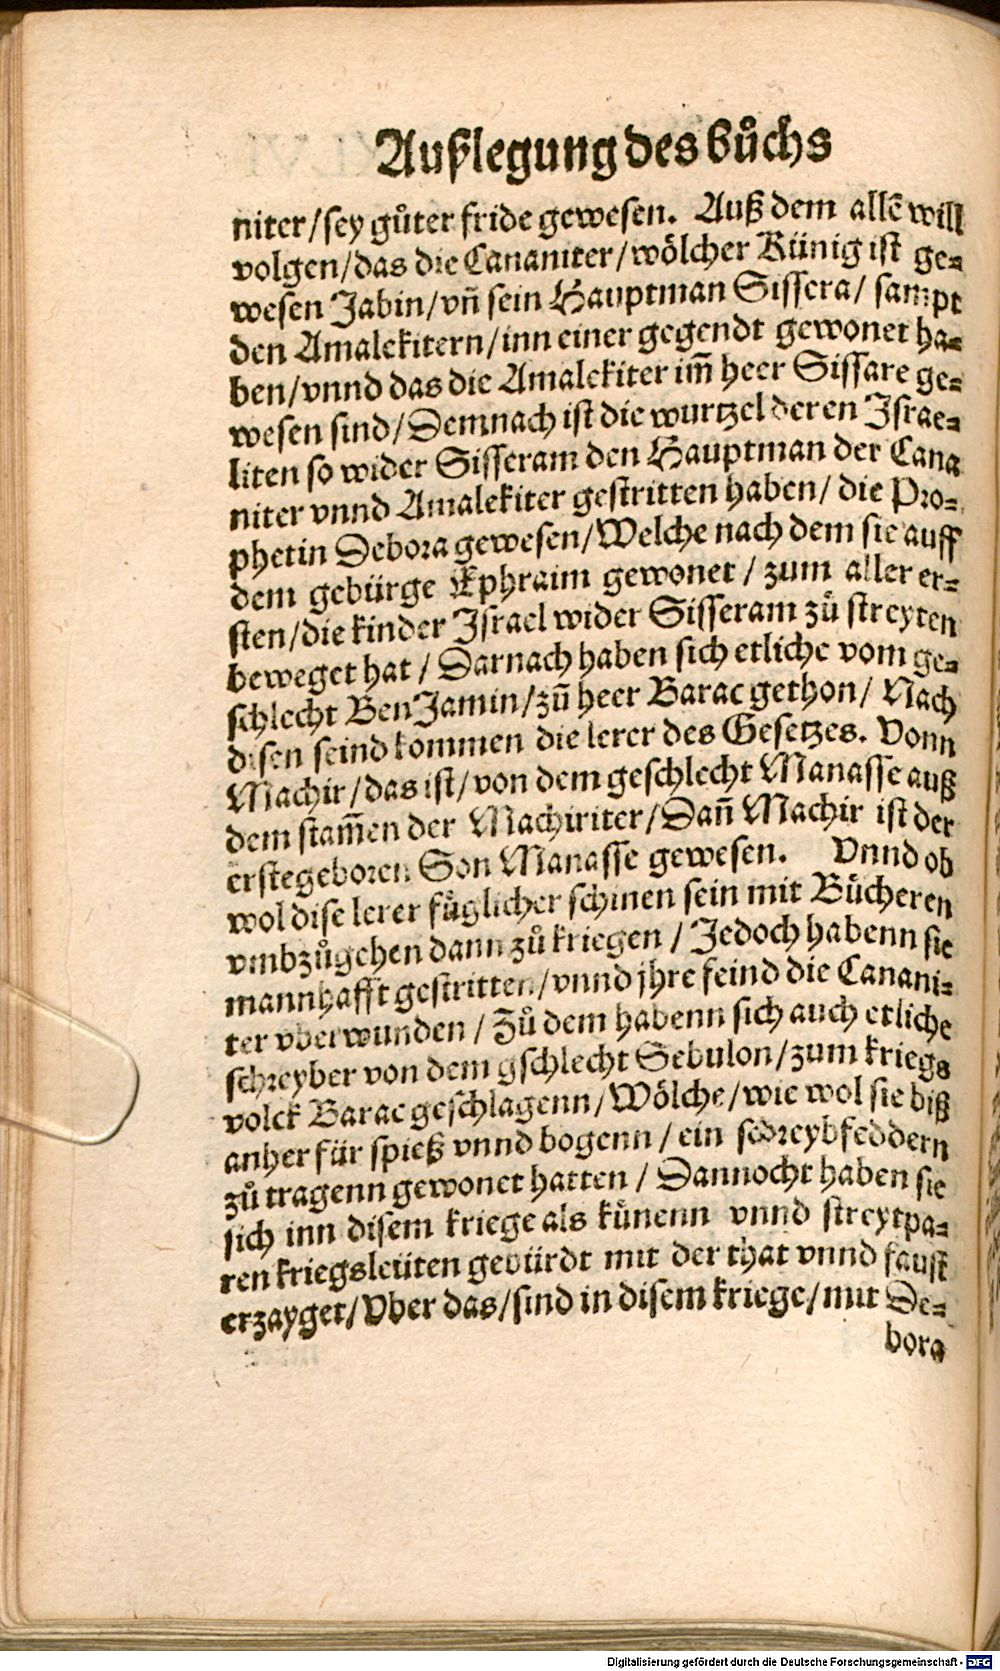 Außlegung des bůchs
niter/sey gůter fride gewesen. Auß dem allẽ will
volgen/das die Cananiter/wölcher Künig ist ge=
wesen Jabin/vñ sein Hauptman Sissera/ sampt
den Amalekitern/inn einer gegendt gewonet ha=
ben/vnnd das die Amalekiter im̃ heer Sissare ge=
wesen sind/Demnach ist die wurtzel deren Israe=
liten so wider Sisseram den Hauptman der Cana
niter vnnd Amalekiter gestritten haben/ die Pro=
phetin Debora gewesen/Welche nach dem sie auff
dem gebürge Ephraim gewonet / zum aller er=
sten/die kinder Israel wider Sisseram zů streyten
beweget hat / Darnach haben sich etliche vom ge=
schlecht BenJamin/zů heer Barac gethon/ Nach
disen seind kommen die lerer des Gesetzes. Vonn
Machir/das ist/von dem geschlecht Manasse auß
dem stam̃en der Machiriter/Dañ Machir ist der
erstegeboren Son Manasse gewesen. Vnnd ob
wol dise lerer fůglicher schinen sein mit Bücheren
vmbzůgehen dann zů kriegen / Jedoch habenn sie
mannhafft gestritten/vnnd jhre feind die Canani=
ter vberwunden / Zů dem habenn sich auch etliche
schreyber von dem gschlecht Sebulon/zum kriegs
volck Barac geschlagenn/Wölche/wie wol sie biß
anher für spieß vnnd bogenn / ein schreybfeddern
zů tragenn gewonet hatten / Dannocht haben sie
sich inn disem kriege als künenn vnnd streytpa=
ren kriegsleüten gebürdt mit der that vnnd faust
erzayget/Vber das/sind in disem kriege/mit De=
bora
Digitalisierung gefördert durch die Deutsche Forschungsgemeinschaft - DFG